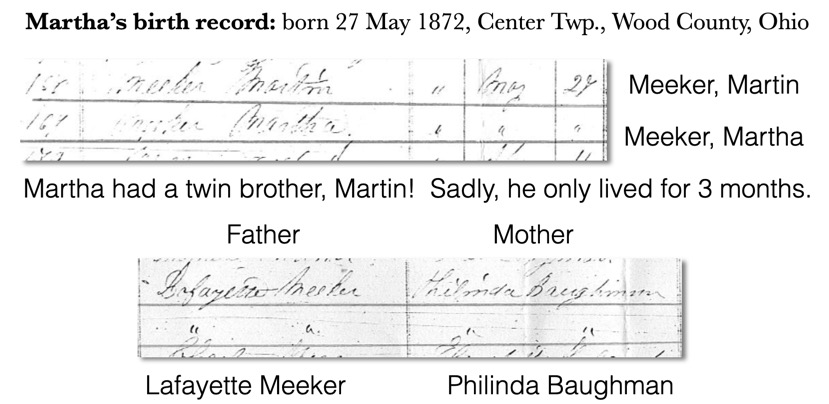 Martha's birth record: born 27 May 1872, Center Twp., Wood County, Ohio
Meeker Martin " May 27
Meeker, Martin
Martha " " "
Meeker, Martha
Martha had a twin brother, Martin! Sadly, he only lived for 3 months.
Father Mother
Lafayette Meeker Philinda Baughman
" " " "
Lafayette Meeker Philinda Baughman